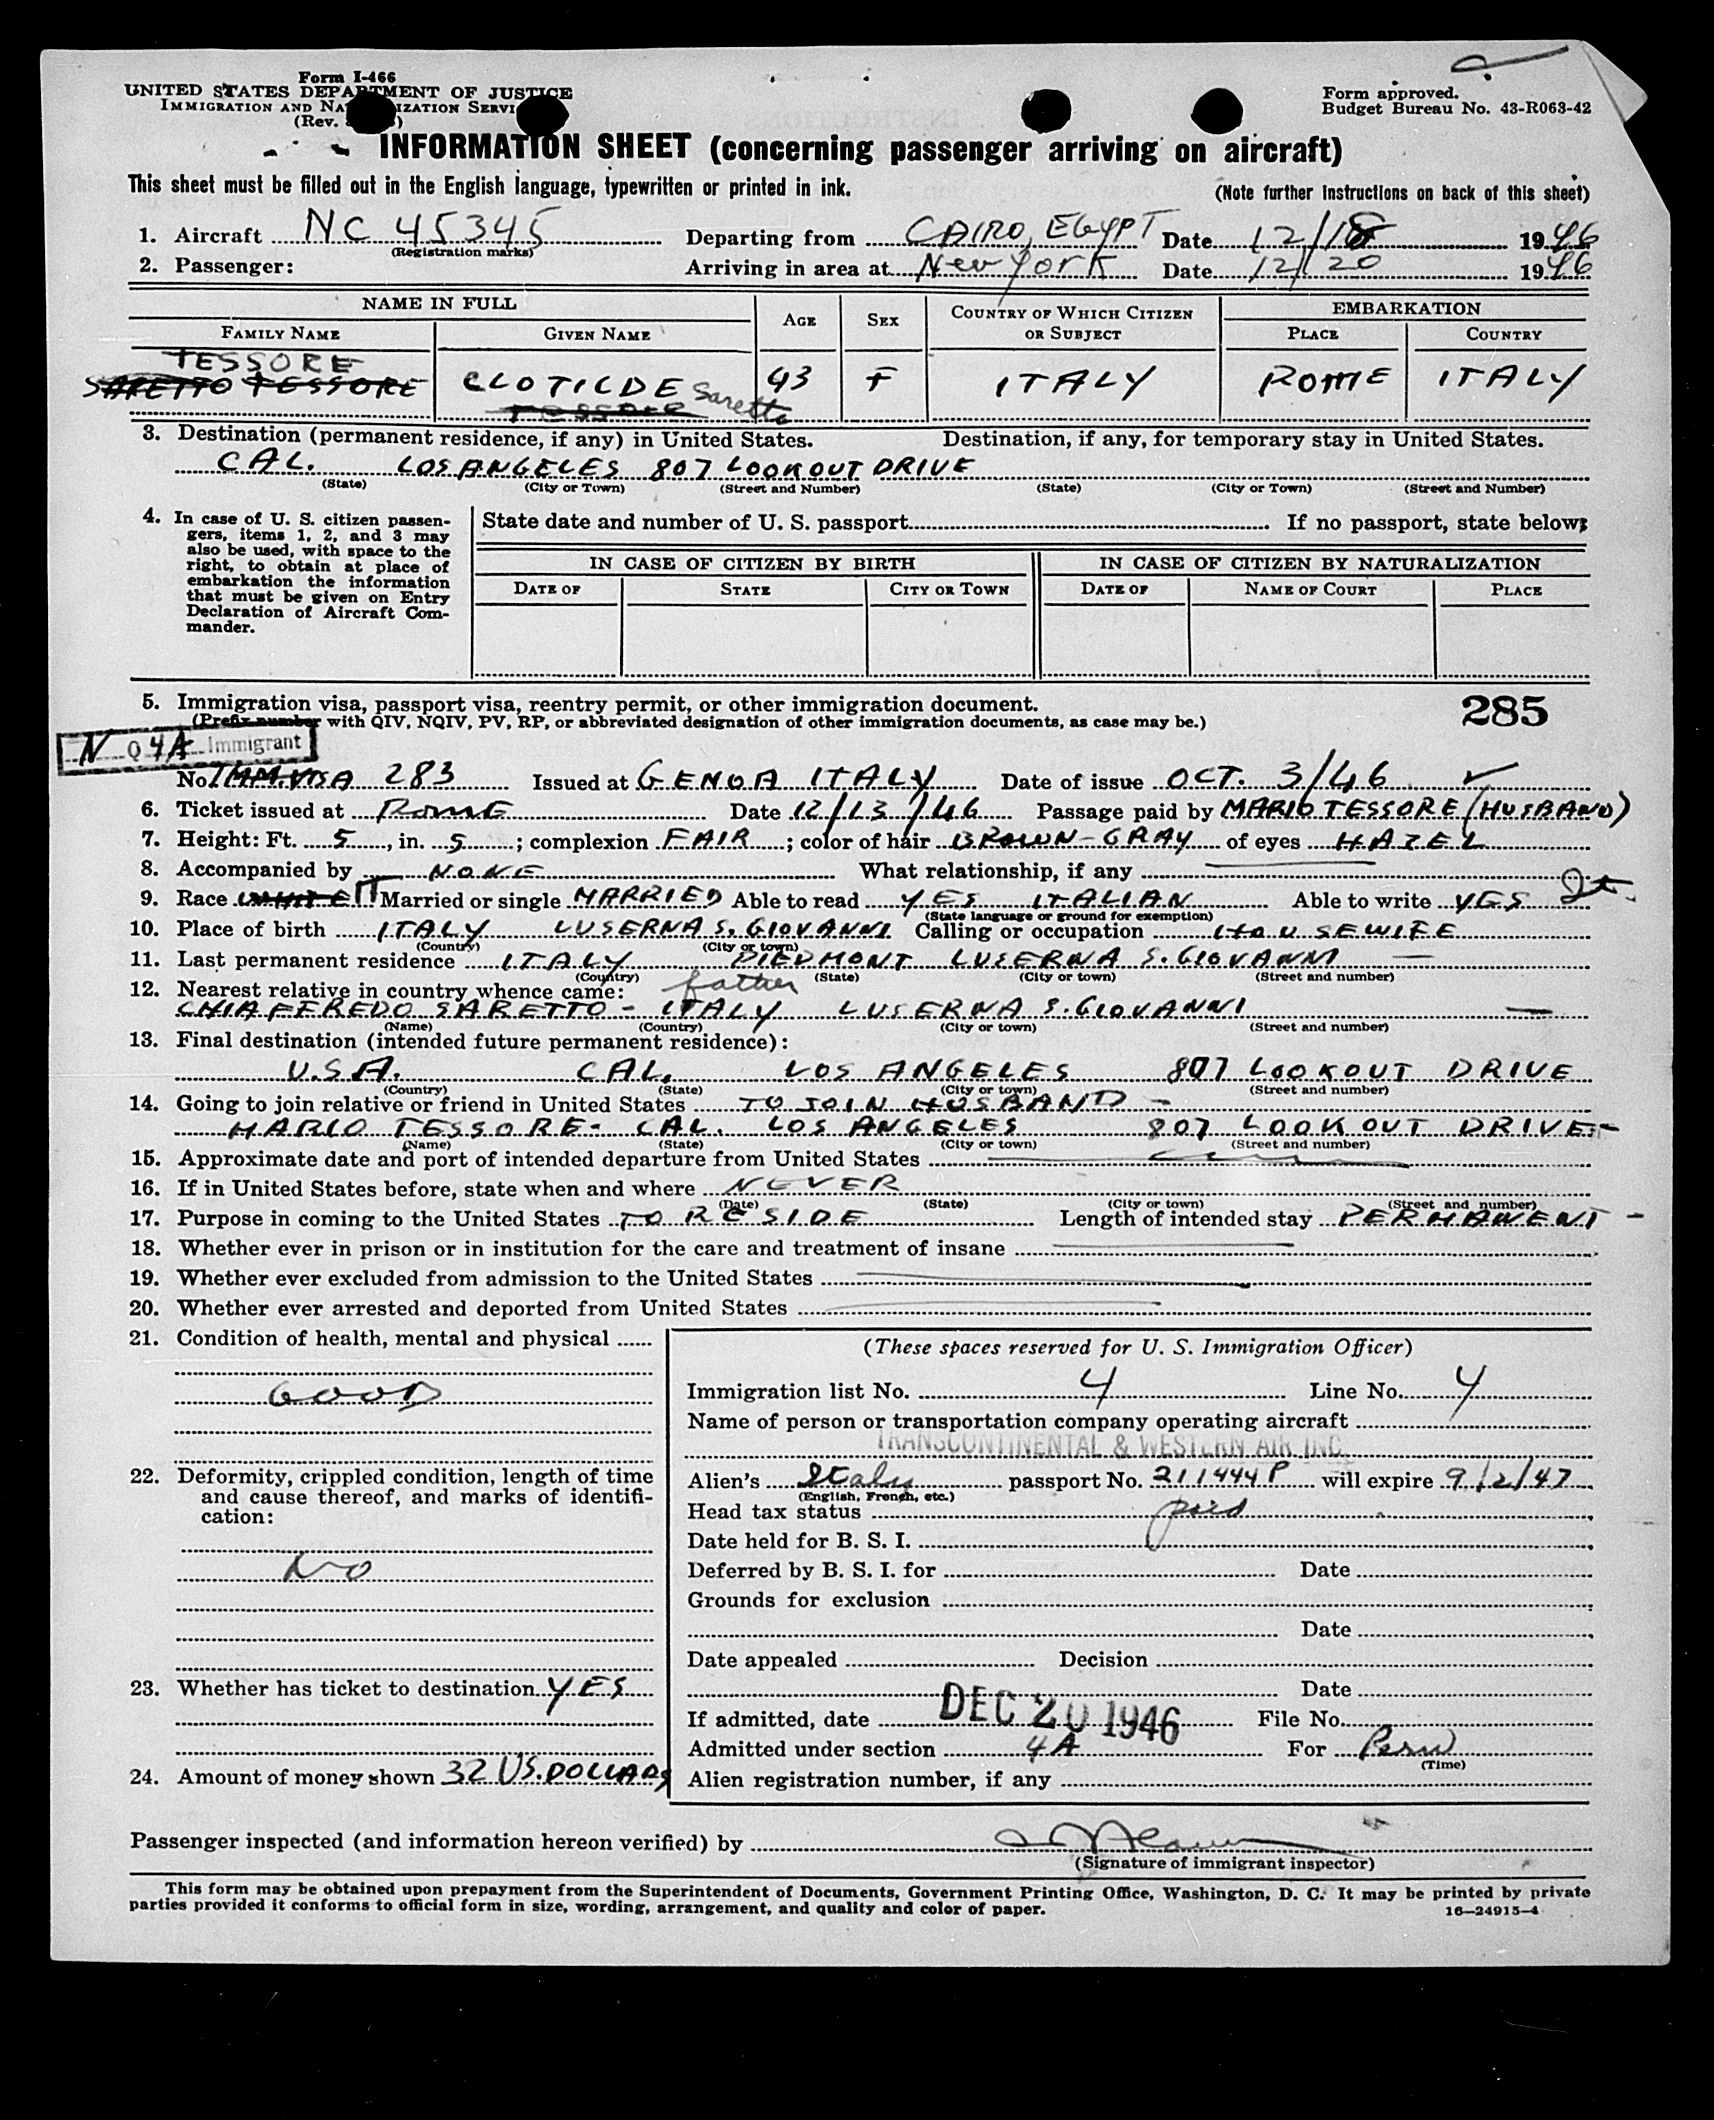 Form I-466
UNITED STATES DEPARTMENT OF JUSTICE
IMMIGRATION AND NATURALIZATION SERVICE
(Rev. )
Form approved.
Budget Bureau No. 43-R063-42
INFORMATION SHEET (concerning passenger arriving on aircraft)
This sheet must be filled out in the English language, typewritten or printed in ink. (Note further instructions on back of this sheet)
1. Aircraft NC 45345 Departing from CAIRO, EGYPT Date 12/18 1946
(Registration marks)
2. Passenger: Arriving in area at New York Date 12/20 1946
NAME IN FULL AGE SEX COUNTRY OF WHICH CITIZEN OR SUBJECT EMBARKATION
FAMILY NAME GIVEN NAME PLACE COUNTRY
TESSORE
SARETTO TESSORE CLOTILDE Saretto 43 F ITALY ROME ITALY
3. Destination (permanent residence, if any) in United States. Destination, if any, for temporary stay in United States.
CAL. LOS ANGELES 807 LOOKOUT DRIVE
(State) (City or Town) (Street and Number) (State) (City or Town) (Street and Number)
4. In case of U. S. citizen passengers, items 1, 2, and 3 may also be used, with space to the right, to obtain at place of embarkation the information that must be given on Entry Declaration of Aircraft Commander.
State date and number of U. S. passport If no passport, state below:
IN CASE OF CITIZEN BY BIRTH IN CASE OF CITIZEN BY NATURALIZATION
DATE OF STATE CITY OR TOWN DATE OF NAME OF COURT PLACE
5. Immigration visa, passport visa, reentry permit, or other immigration document. 285
(Prefix number with QIV, NQIV, PV, RP, or abbreviated designation of other immigration documents, as case may be.)
N Q 4A Immigrant
No. IMM.VISA 283 Issued at GENOA ITALY Date of issue OCT. 3/46
6. Ticket issued at ROME Date 12/13/46 Passage paid by MARIO TESSORE (HUSBAND)
7. Height: Ft. 5, in. 5; complexion FAIR; color of hair BROWN-GRAY of eyes HAZEL
8. Accompanied by NONE What relationship, if any
9. Race WHITE IT Married or single MARRIED Able to read YES ITALIAN Able to write YES It.
(State language or ground for exemption)
10. Place of birth ITALY LUSERNA S. GIOVANNI Calling or occupation HOUSEWIFE
(Country) (City or town)
11. Last permanent residence ITALY PIEDMONT LUSERNA S. GIOVANNI —
(Country) (State) (City or town) (Street and number)
12. Nearest relative in country whence came: father
CHIAFFREDO SARETTO - ITALY LUSERNA S. GIOVANNI —
(Name) (Country) (City or town) (Street and number)
13. Final destination (intended future permanent residence):
U.S.A. CAL. LOS ANGELES 807 LOOKOUT DRIVE
(Country) (State) (City or town) (Street and number)
14. Going to join relative or friend in United States TO JOIN HUSBAND -
MARIO TESSORE- CAL. LOS ANGELES 807 LOOKOUT DRIVE-
(Name) (State) (City or town) (Street and number)
15. Approximate date and port of intended departure from United States
16. If in United States before, state when and where NEVER
(Date) (State) (City or town) (Street and number)
17. Purpose in coming to the United States TO RESIDE Length of intended stay PERMANENT -
18. Whether ever in prison or in institution for the care and treatment of insane
19. Whether ever excluded from admission to the United States
20. Whether ever arrested and deported from United States
21. Condition of health, mental and physical
GOOD
22. Deformity, crippled condition, length of time and cause thereof, and marks of identification:
NO
23. Whether has ticket to destination YES
24. Amount of money shown 32 US. DOLLARS
(These spaces reserved for U. S. Immigration Officer)
Immigration list No. 4 Line No. 4
Name of person or transportation company operating aircraft
TRANSCONTINENTAL & WESTERN AIR INC.
Alien's Italy passport No. 211444 P will expire 9/2/47
(English, French, etc.)
Head tax status paid
Date held for B. S. I.
Deferred by B. S. I. for Date
Grounds for exclusion
Date
Date appealed Decision
Date
If admitted, date DEC 20 1946 File No.
Admitted under section 4A For Perm
(Time)
Alien registration number, if any
Passenger inspected (and information hereon verified) by
(Signature of immigrant inspector)
This form may be obtained upon prepayment from the Superintendent of Documents, Government Printing Office, Washington, D. C. It may be printed by private
parties provided it conforms to official form in size, wording, arrangement, and quality and color of paper. 16—24915-4